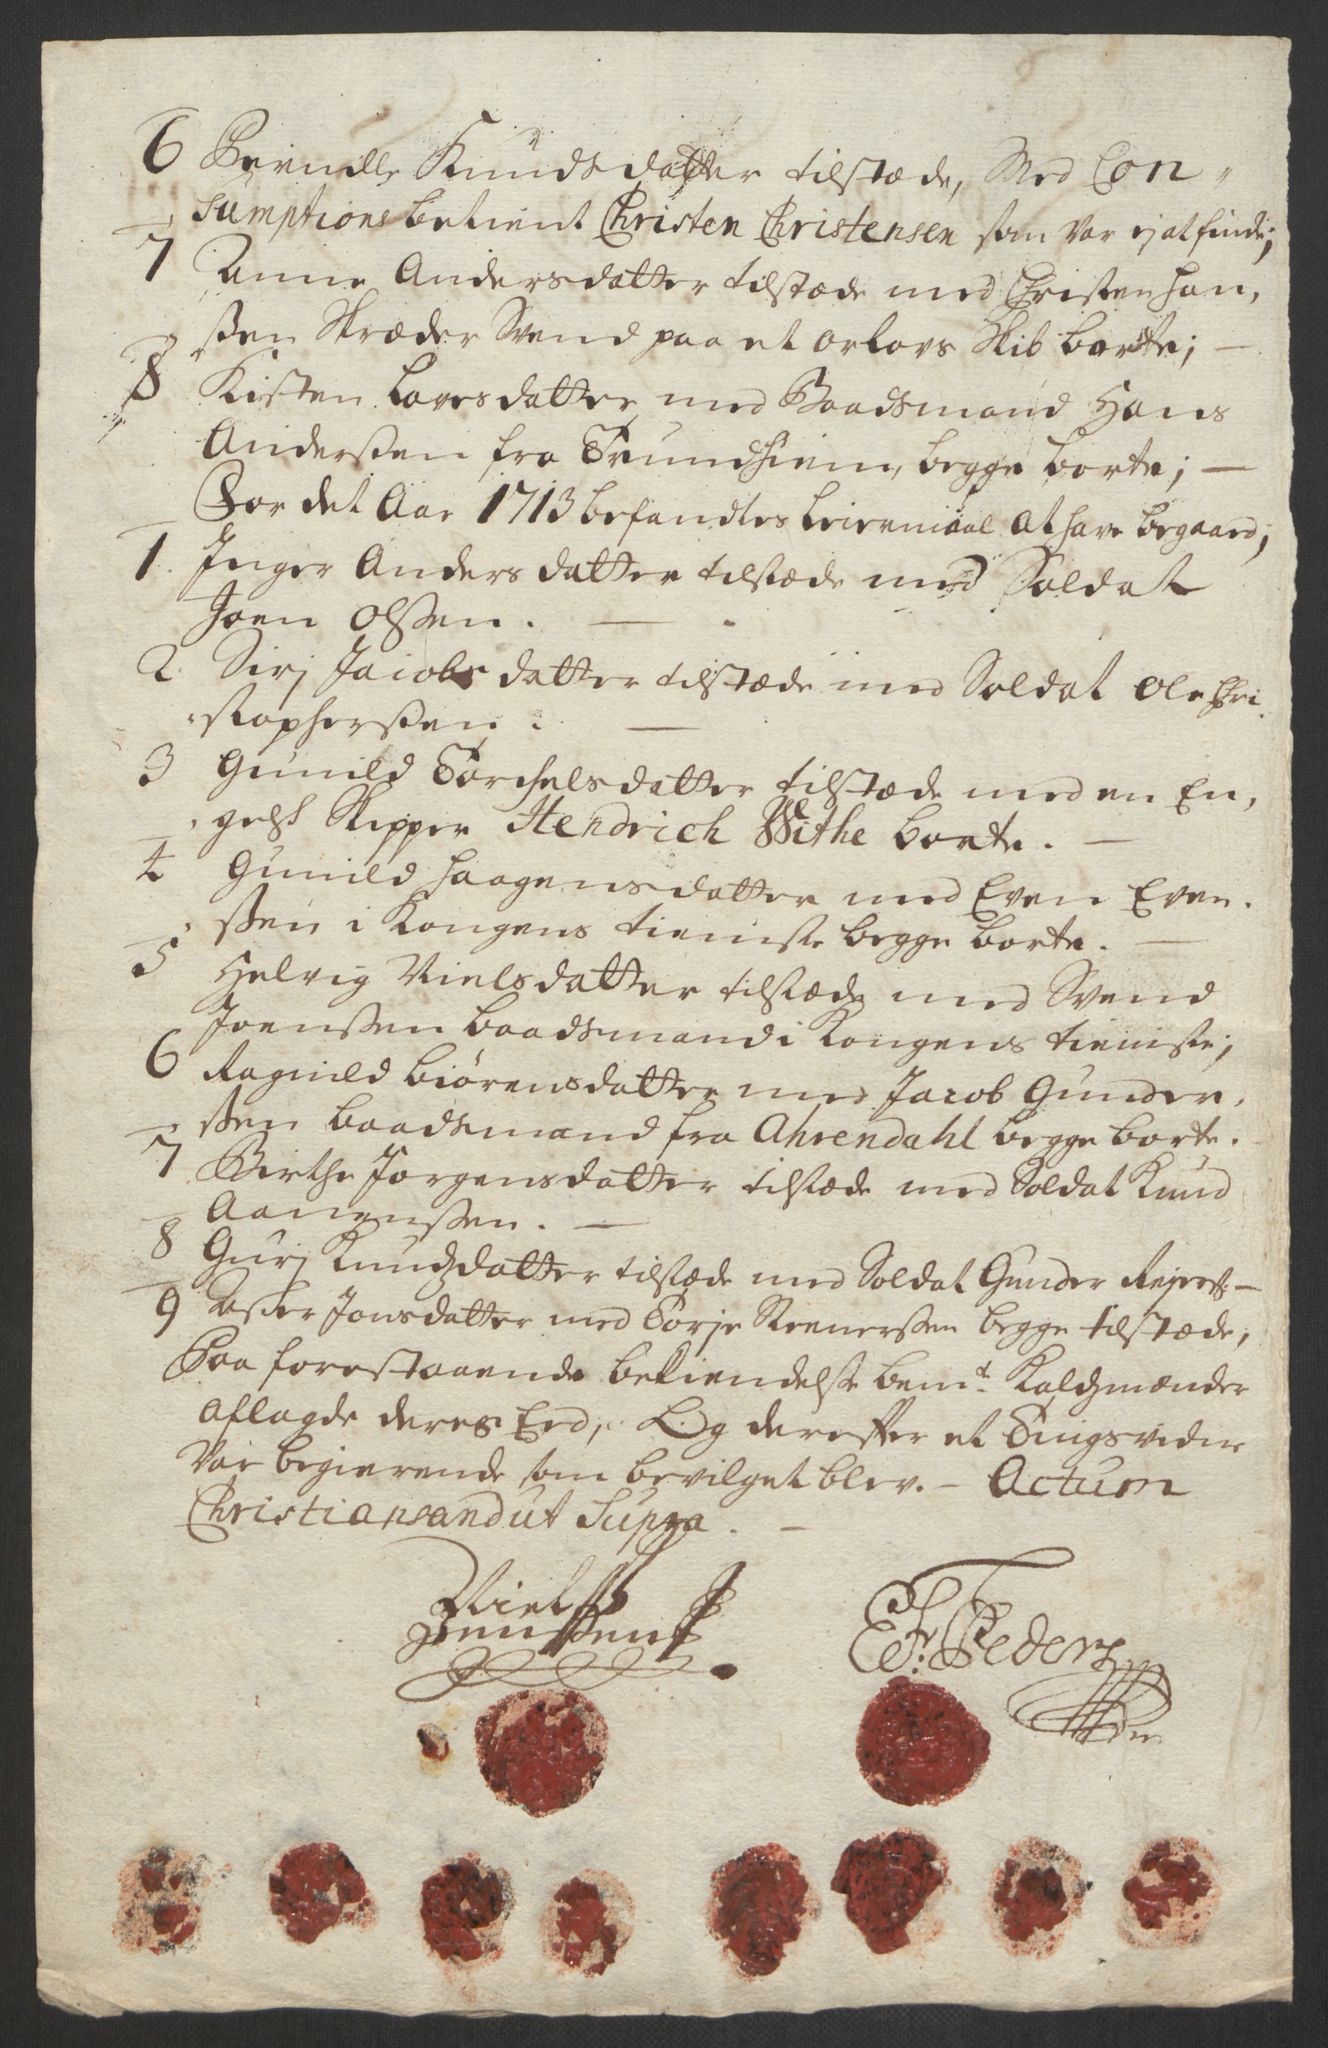 6 Berndll Knudsdatter tilstæde, Med Con-
sumptions betient Christen Christensen som var ej at finde;
7 Anne Andersdatter tilstæde med Christen Han,
ßen Skræder Svend paa et orlovs Skib borte; —
8 Kisten Lavesdatter med Baadsmand Hans
Anderßen fra Trundhiem, begge borte; —
For det Aar 1713 befandtes Leiermaal at have begaaed;
1. Inger Andersdatter tilstæde med Soldat
Joen Olßen. —
2 Sirj Jacobsdatter tilstæde med Soldat Ole Chri
stopherßen. —
3 Gunild Torchelsdatter tilstæde med en En,
gelsk Skipper Hendrich Withe borte. —
4 Gunild Haagensdatter med Even Even.
ßen i Kongens tieniste begge borte. —
5 Helvig Nielsdatter tilstæde med Svend
Joenßen baadsmand i Kongens tieniste;
6 Ragnild Biörensdatter med Jacob Gunder,
ßen baadsmand fra Ahrendahl begge borte.
7 Birthe Jorgensdatter tilstæde med Soldat Knud
Aanenßen. —
8 Gurj Knudzdatter tilstæde med Soldat Gunder Rejerß: —
9 Aßer Jonsdatter med Torje Steenerßen begge tilstæde;
Paa forestaaende bekiendelse bemt. Kaldzmænder
aflagde deres Eed, Og derefter et Tingsvidne
Var begierende som bevilget blev. — Actum
Christiansand ut Supra. —
Niels
Jenßen
Ped̃erz